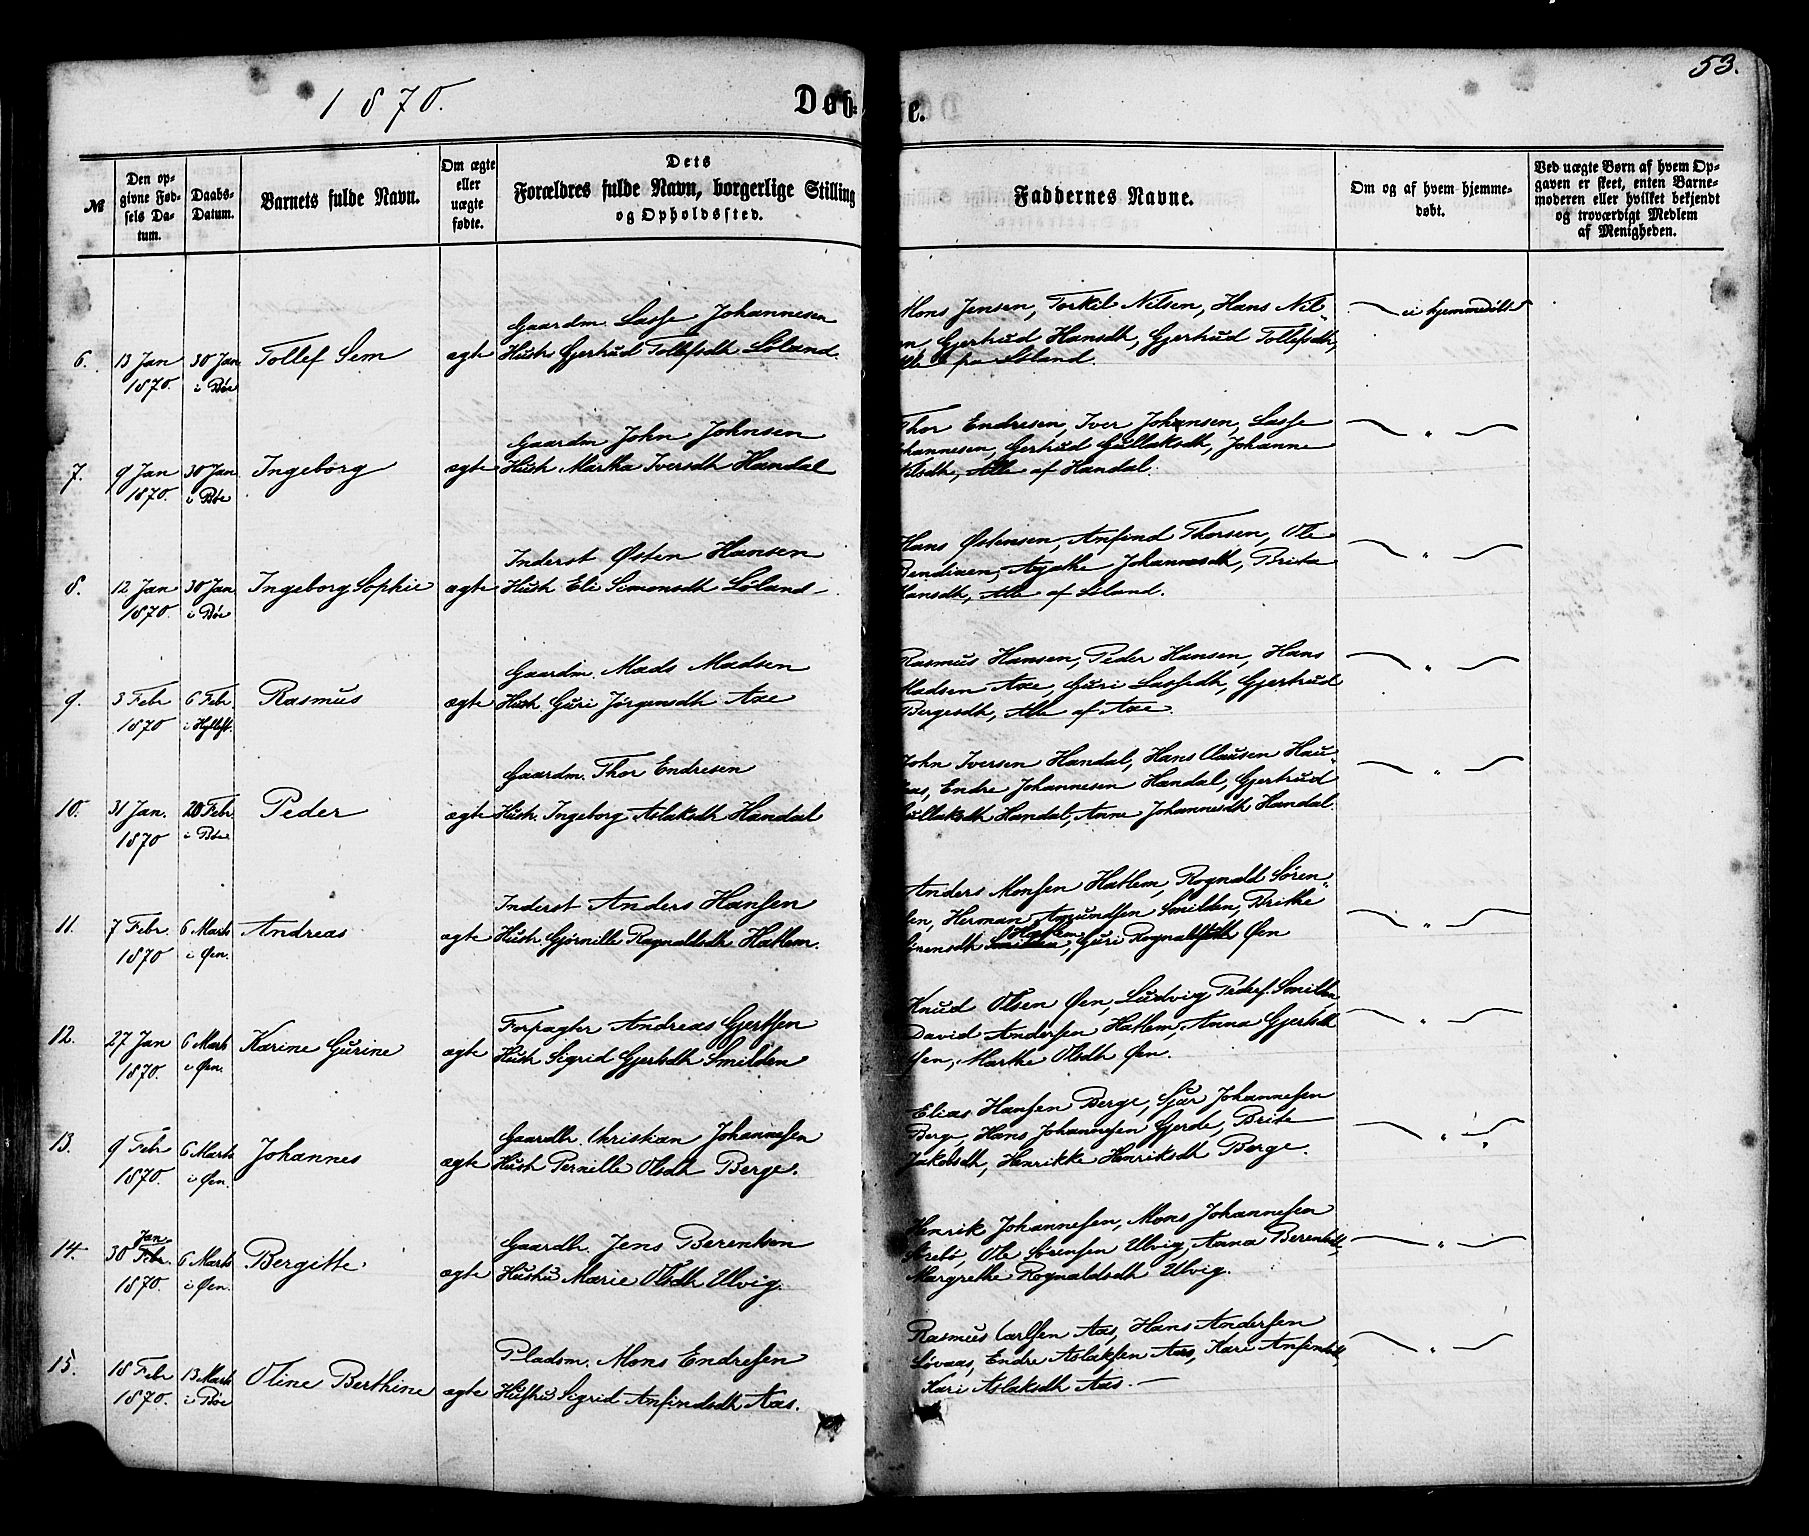 53.
1870.
Døb- e.
№
Den opgivne Fødsels Datum.
Daabs-Datum.
Barnets fulde Navn.
Om ægte eller uægte fødte.
Dets Forældres fulde Navn, borgerlige Stilling og Opholdssted.
Faddernes Navne.
Om og af hvem hjemmedøbt.
Ved uægte Børn af hvem Opgaven er skeet, enten Barnemoderen eller hvilket bekjendt og troværdigt Medlem af Menigheden.
6. 13 Jan 1870. 30 Jan i Bøe
Tollef Sem
ægte
Gaardm. Lasse Johannesen
Hust. Gjertrud Tollefsdtr. Løland.
Mons Jensen, Torkil Nilsen, Hans Nil-
en, Gjertrud Hansdtr, Gjertrud Tollefsdtr,
Alle fra Løland.
ei hjemmedøbt
7. 9 Jan 1870. 30 Jan i Bøe
Ingeborg
ægte
Gaardm John Johnsen
Hust Martha Iversdtr Handal
Thor Endresen, Iver Johansen, Lasse
ohannesen, Gertrud Gullaksdtr, Johanne
Nilsdtr, Alle af Handal.
"
8. 12 Jan 1870. 30 Jan i Bøe
Ingeborg Sophie
ægte
Inderst Østen Hansen
Hust Eli Simonsdtr Løland
Hans Østensen, Anfind Thorsen, Ole
Bendixen, Agathe Johannesdtr, Brita
Hansdtr, Alle af Løland.
"
9. 3 Febr 1870 6 Febr
Rasmus
ægte
Gaardm. Mads Madsen
Hust. Guri Jørgensdtr Axe
Rasmus Hansen, Peder Hansen, Hans
Madsen Axe, Guri Lassedtr, Gjertrud
Bergesdtr, Alle af Axe.
"
10. 31 Jan. 1870 20 Febr. i Bøe
Peder
ægte
Gaardm. Thor Endresen
Hust. Ingeborg Aslaksdtr Handal
John Iversen Handal, Hans Clausen Hau-
aas, Endre Johannesen Handal, Gjertrud
Gullaksdtr Handal, Anne Johannesdtr Handal.
"
11. 7 Febr. 1870 6 Marts i Øen.
Andreas
ægte
Inderst Anders Hansen
Hust. Gjørnille Ragnaldsdtr Hatlem.
Anders Monsen Hatlem, Rognald Søren-
sen, Herman Amundsen Smilden, Brithe
Hatlem
Sørensdtr Smilden, Guri Rognaldsdtr Øen
"
12. 27 Jan 1870. 6 Marts i Øen.
Karine Gurine
ægte
Forpagter Andreas Gjertsen
Hust Sigrid Gjertsdtr Smilden
Knud Olsen Øen, Ludvig Peders. Smilden,
David Andersen Hatlem, Anna Gjertsdtr
Øen, Marthe Olsdtr Øen.
"
13. 9 Febr 1870. 6 Marts i Øen.
Johannes
ægte
Gaardbr. Christian Johannesen
Hust Pernille Olsdtr Berge.
Elias Hansen Berge, Sjur Johannesen
Berg, Hans Johannesen Gjerde, Brite
Jakobsdtr, Henrikke Henriksdtr Berge.
"
14. 30 Febr. Jan 1870. 6 Marts i Øen.
Bergitte
ægte
Gaardbr. Jens Berentsen
Hustru Marie Olsdtr Ulvig.
Henrik Johannesen, Mons Johannesen
Strebø, Ole Sørensen Ulvig, Anna Berentsdtr,
Margrethe Rognaldsdtr Ulvig.
"
15. 18 Febr 1870. 13 Marts i Bøe
Oline Berthine
ægte
Pladsm. Mons Endresen
Hustru Sigrid Anfindsdtr Aas.
Rasmus Carlsen Aas, Hans Andersen
Løvaas, Endre Aslaksen Aas, Kari Anfindsdtr,
Kari Aslaksdtr Aas.
"